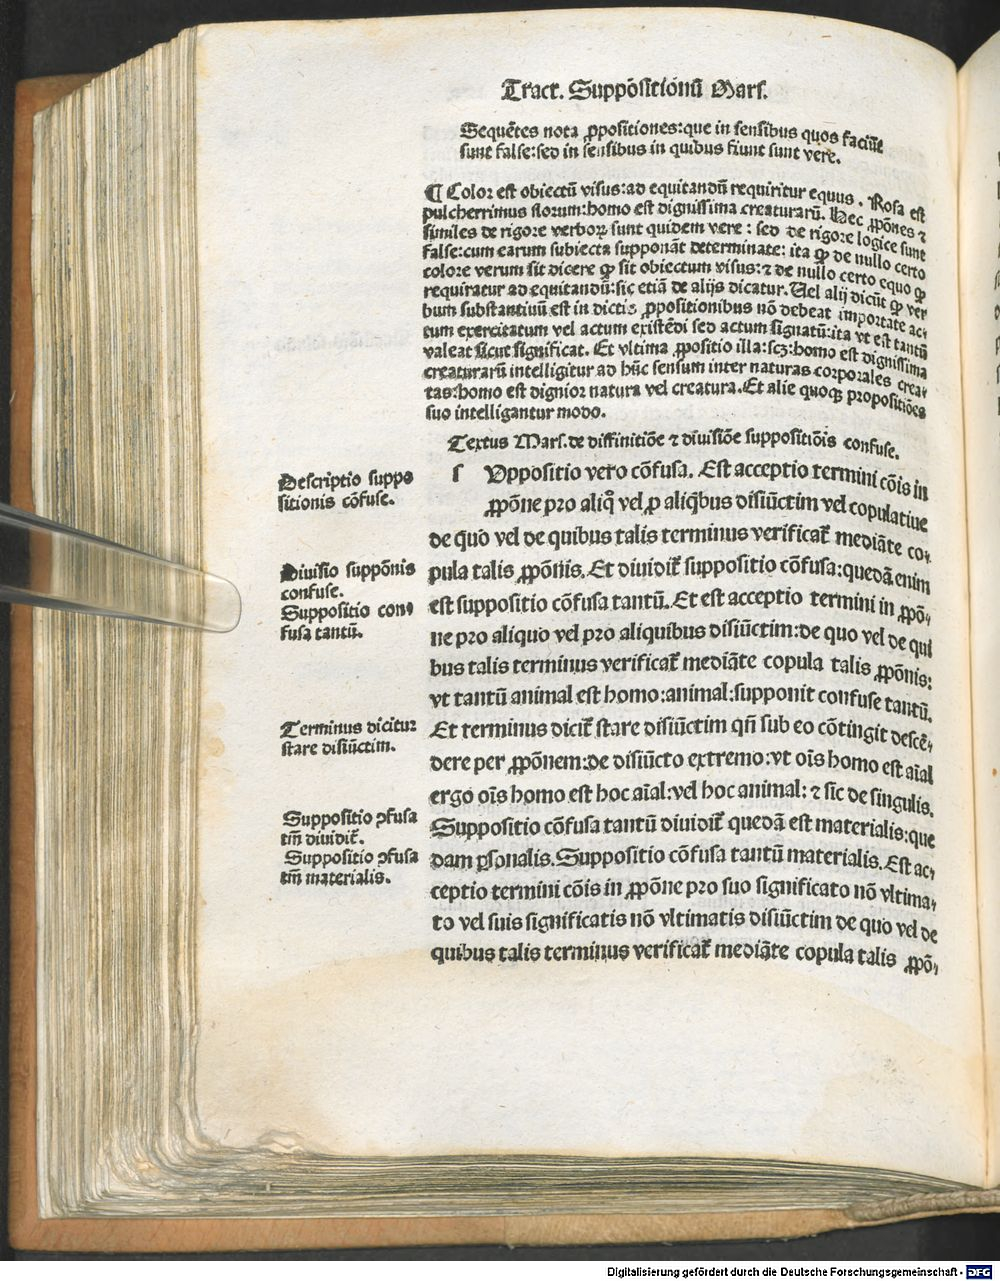 Tract. Suppositionū Mars.
Sequētes nota ꝓpositiones:que in sensibus quos faciūt
sunt false:sed in sensibus in quibus fiunt sunt vere.
¶ Color est obiectū visus:ad equitandū requiritur equus. Rosa est
pulcherrimus florum:homo est dignissima creaturarū. Hec ꝓpōnes ⁊
similes de rigore verboꝝ sunt quidem vere: sed de rigore logice sunt
false:cum earum subiecta supponāt determinate: ita ꝙ de nullo certo
colore verum sit dicere ꝙ sit obiectum visus:⁊ de nullo certo equo ꝙ
requiratur ad equitandū:sic etiā de alijs dicatur. Uel alij dicūt ꝙ ver
bum substantiuū est in dictis ꝓpositionibus nō debeat importate ac⸗
tum exercitatum vel actum existēdi sed actum signatū:ita vt est tantū
valeat sicut significat. Et vltima ꝓpositio illa:scꝫ:homo est dignissima
creaturarū intelligitur ad hūc sensum inter naturas corporales crea⸗
tas:homo est dignior natura vel creatura. Et alie quoqꝫ propositiōes
suo intelligantur modo.
Textus Mars. de diffinitiōe ⁊ diuisiōe suppositiōis confuse.
Descriptio suppo
sitionis cōfuse.
ſ Uppositio vero cōfusa. Est acceptio termini cōis in
ꝓpōne pro aliq̄ vel ꝑ aliq̄bus disiūctim vel copulatiue
de quo vel de quibus talis terminus verificat᷑ mediāte co⸗
Diuisio suppōnis
confuse.
Suppositio con⸗
fusa tantū.
pula talis ꝓpōnis. Et diuidit᷑ suppositio cōfusa:quedā enim
est suppositio cōfusa tantū. Et est acceptio termini in ꝓpō⸗
ne pro aliquo vel pro aliquibus disiūctim:de quo vel de qui
bus talis terminus verificat᷑ mediāte copula talis ꝓpōnis:
vt tantū animal est homo:animal:supponit confuse tantū.
Terminus dicitur
stare disiūctim.
Et terminus dicit᷑ stare disiūctim qn̄ sub eo cōtingit descē⸗
dere per ꝓpōnem:de disiūcto extremo:vt oīs homo est aīal
ergo oīs homo est hoc aīal:vel hoc animal: ⁊ sic de singulis.
Suppositio ꝯfusa
tm̄ diuidit᷑.
Suppositio ꝯfusa
tm̄ materialis.
Suppositio cōfusa tantū diuidit᷑ quedā est materialis:que
dam ꝑsonalis. Suppositio cōfusa tantū materialis. Est ac⸗
ceptio termini cōis in ꝓpōne pro suo significato nō vltima⸗
to vel suis significatis nō vltimatis disiūctim de quo vel de
quibus talis terminus verificat᷑ mediāte copula talis ꝓpō⸗
Digitalisierung gefördert durch die Deutsche Forschungsgemeinschaft - DFG